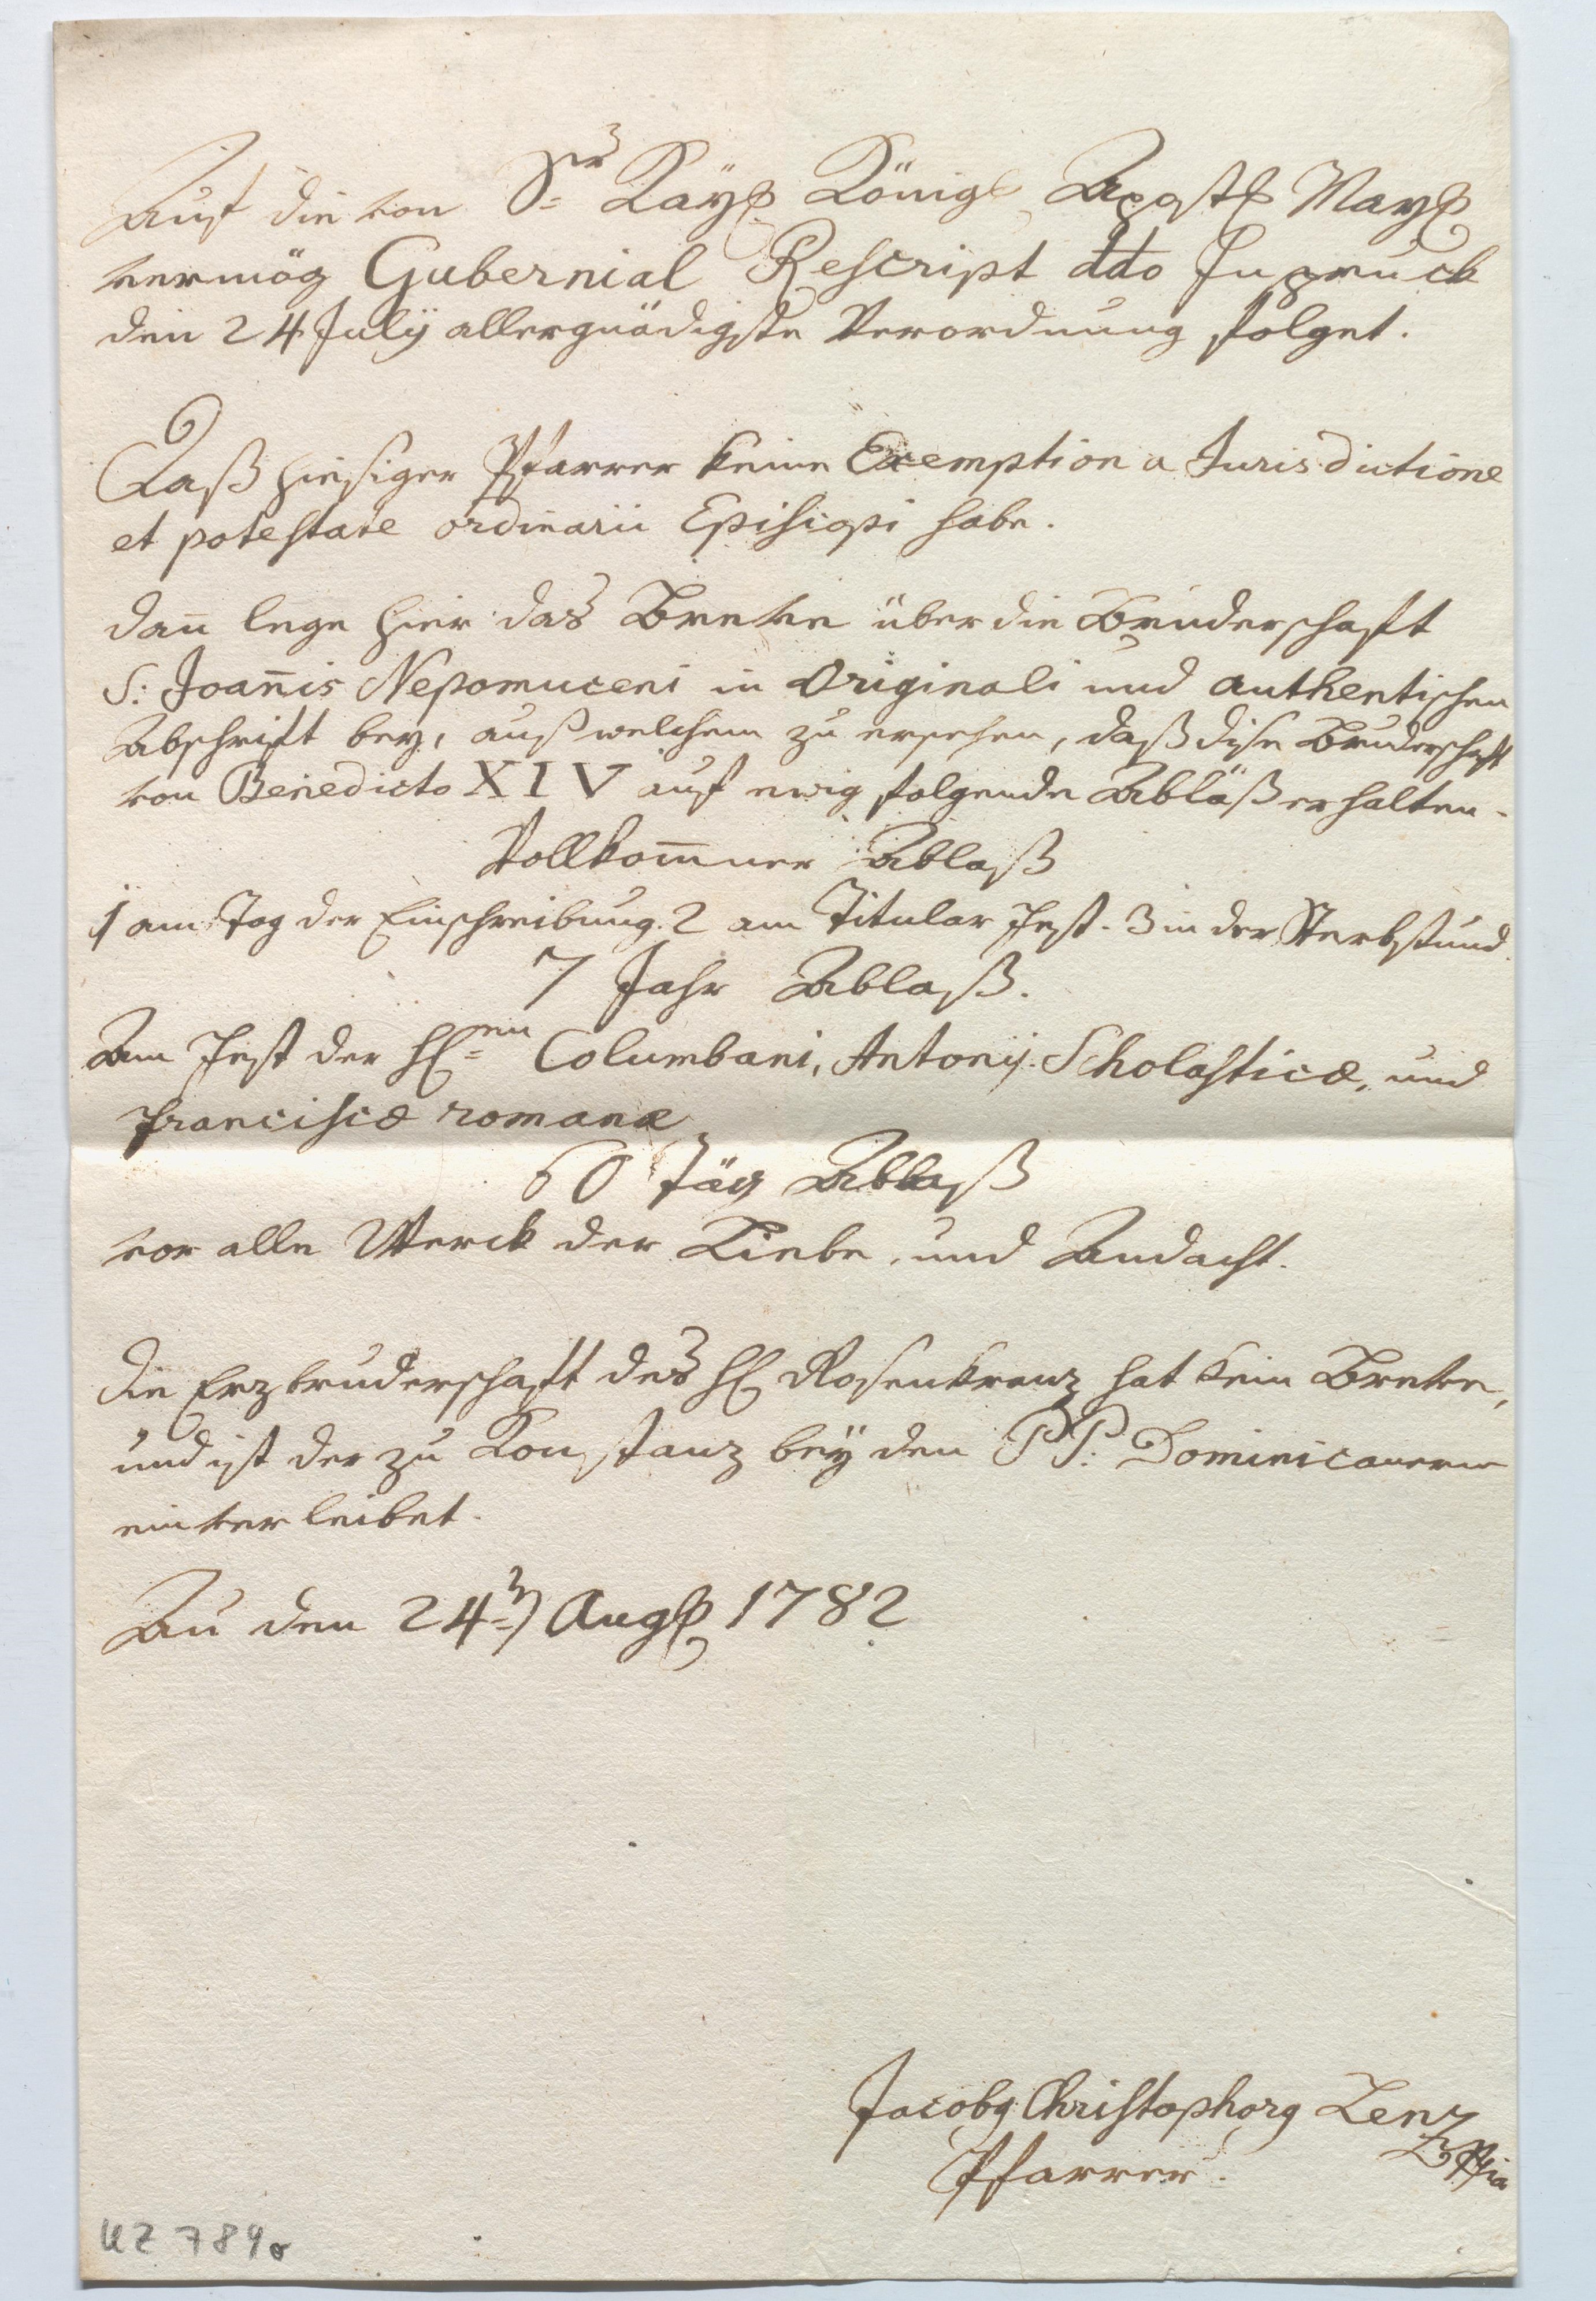 Auf die von Sr Kayl Königl Apostl Mayl
vermög Gubernial Rescript ddo Inspruck
den 24 Julÿ allergnädigste Verordnung folget.
Daß hiesiger Pfarrer keine Exemption a Jurisdictione
et potestate ordinarii Episcopi habe.
dan̄ lege hier das Breve über die Bruderschaft
S: Joan̄is Nepomuceni in Originali und authentischen
Abschrift bey, auß welchem zu ersehen, daß dise Bruderschafft
von Benedicto XIV auf ewig folgende Abläß erhalten.
Vollkom̄ner Ablaß
1 am Tag der Einschreibung. 2 am Titular Fest. 3 in der Sterbstund.
7 Jahr Ablaß.
Am Fest der Hlen Columbani, Antonij. Scholasticæ, und
Franciscæ romanæ
60 Täg Ablaß
vor alle Werck der Liebe, und Andacht.
die Erzbruderschafft des Hl Rosenkranz hat kein Breve,
und ist der zu Konstanz beÿ den PP: Dominicanern
einverleibet.
Au den 24 Augl 1782
Jacobg Christophorg Lenz
Pfarrer.
UZ 789